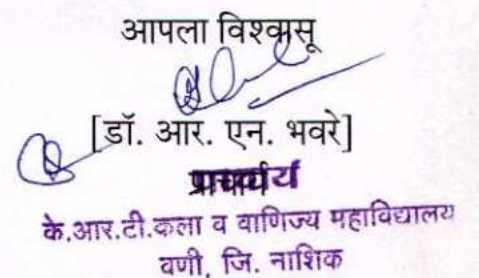 आपला विश्वासू
[डॉ. आर. एन. भवरे]
प्राचार्य
के.आर.टी.कला व वाणिज्य महाविद्यालय
वणी, जि. नाशिक